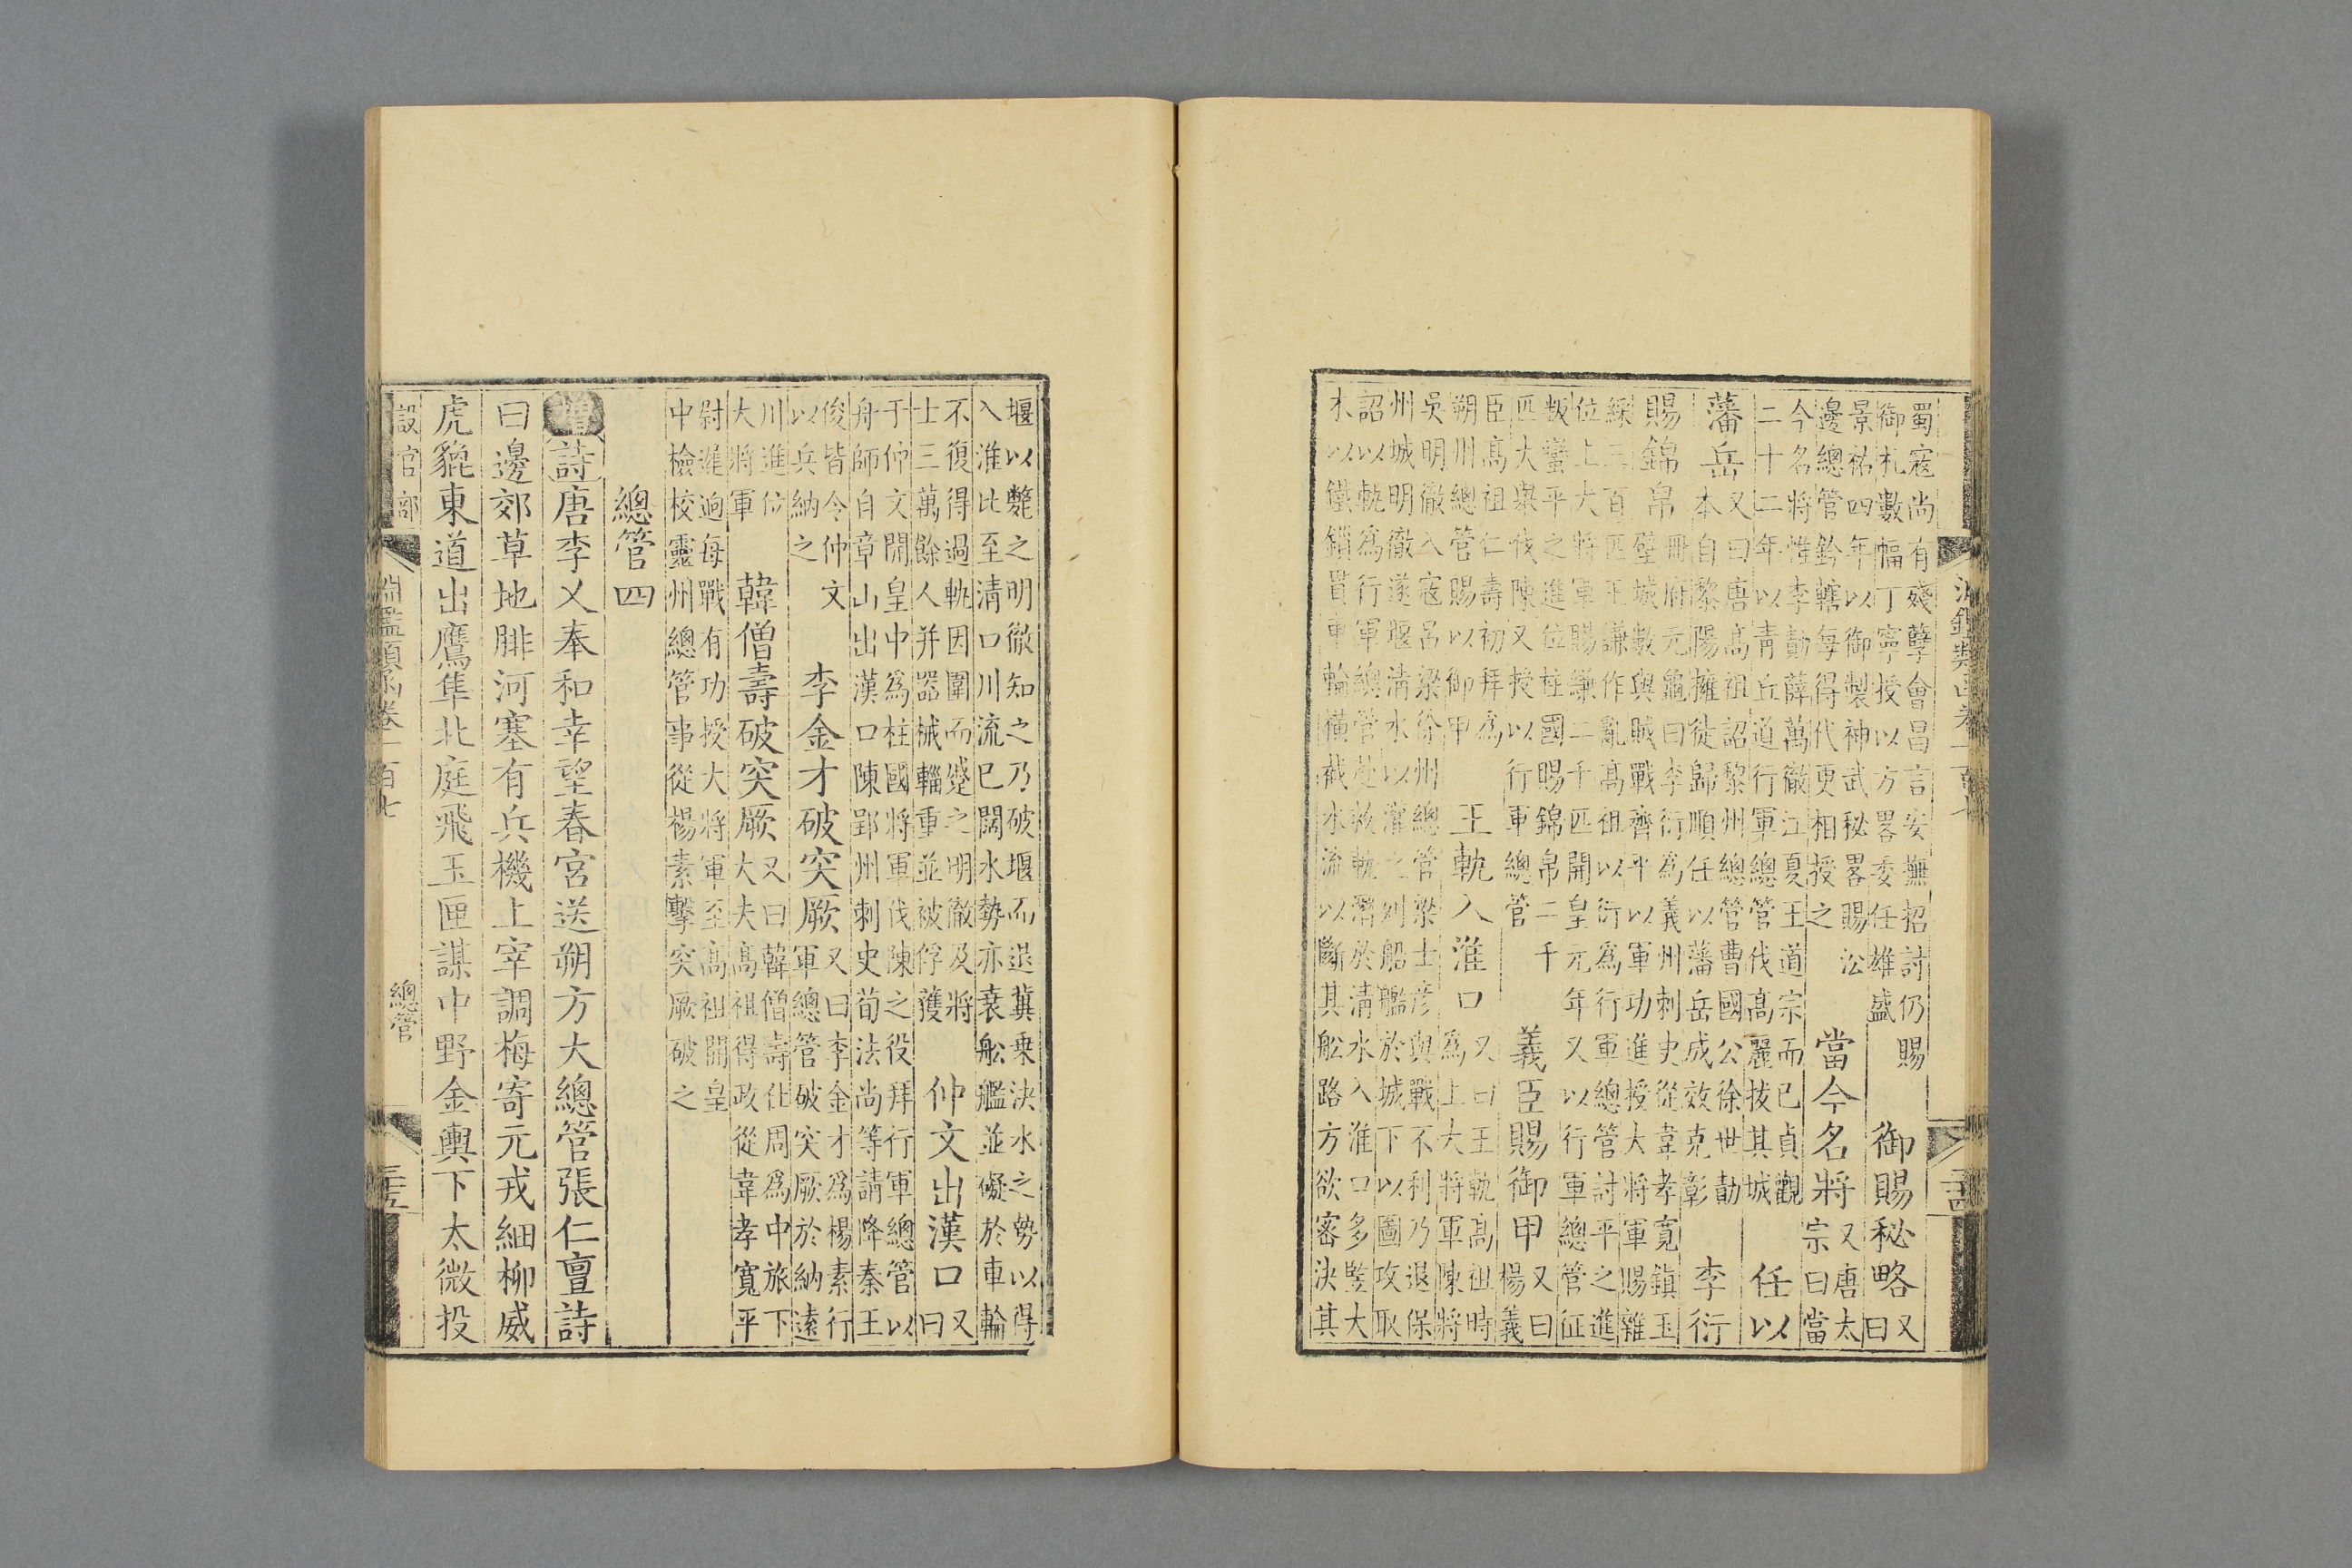 蜀寇尚有殘孽會昌言安撫招討仍賜
御札數幅丁寧授以方畧委任雄盛
御賜秘略
又
曰
景祐四年以御製神武秘畧賜公
邊總管鈐轄每得代更相授之
當今名將
又唐太
宗曰當
今名將惟李勣薛萬徹江夏王道宗而已貞觀
二十二年以青丘道行軍總管伐高麗拔其城
任以
藩岳
又曰唐高祖詔黎州總管曹國公徐世勣
本自黎陽擁徒歸順任以藩岳成效克彰
李衍
賜錦帛
冊府元龜曰李衍為義州刺史從韋孝寬鎮玉
壁城數與賊戰齊平以軍功進授大將軍賜雜
綵三百匹王謙作亂高祖以衍為行軍總管討平之進
位上大將軍賜縑二千匹開皇元年又以行軍總管征
叛蠻平之進位柱國賜錦帛二千
匹大舉伐陳又授以行軍總管
義臣賜御甲
又曰
楊義
臣高祖仁壽初拜為
朔川總管賜以御甲
王軌入淮口
又曰王軌高祖時
為上大將軍陳將
吳明徹入寇呂梁徐州總管梁士彥與戰不利乃退保
州城明徹遂堰清水以灌之列船艦於城下以圖攻取
詔以軌為行軍總管赴救軌潛於清水入淮口多豎大
木以鐵鎖貫車輪橫截水流以斷其船路方欲密決其
堰以斃之明徹知之乃破堰而退冀乗決水之勢以得
入淮比至清口川流已闊水勢亦衰舩艦並礙於車輪
不復得過軌因圍而蹙之明徹及將
士三萬餘人并器械輜重並被俘獲
仲文出漢口
又
曰
于仲文開皇中為柱國將軍伐陳之役拜行軍總管以
舟師自章山出漢口陳郢州刺史荀法尚等請降秦王
俊皆令仲文
以兵納之
李金才破突厥
又曰李金才為楊素行
軍總管破突厥於納遠
川進位
大將軍
韓僧壽破突厥
又曰韓僧壽仕周為中旅下
大夫高祖得政從韋孝寬平
尉遲迥每戰有功授大將軍至高祖開皇
中檢校靈州總管事從楊素擊突厥破之
總管四
增詩唐李乂奉和幸望春宮送朔方大總管張仁亶詩
曰邊郊草地腓河塞有兵機上宰調梅寄元戎細柳威
虎貔東道出鷹隼北庭飛玉匣謀中野金輿下太微投
設官部
淵鑑類函卷一百七
總管